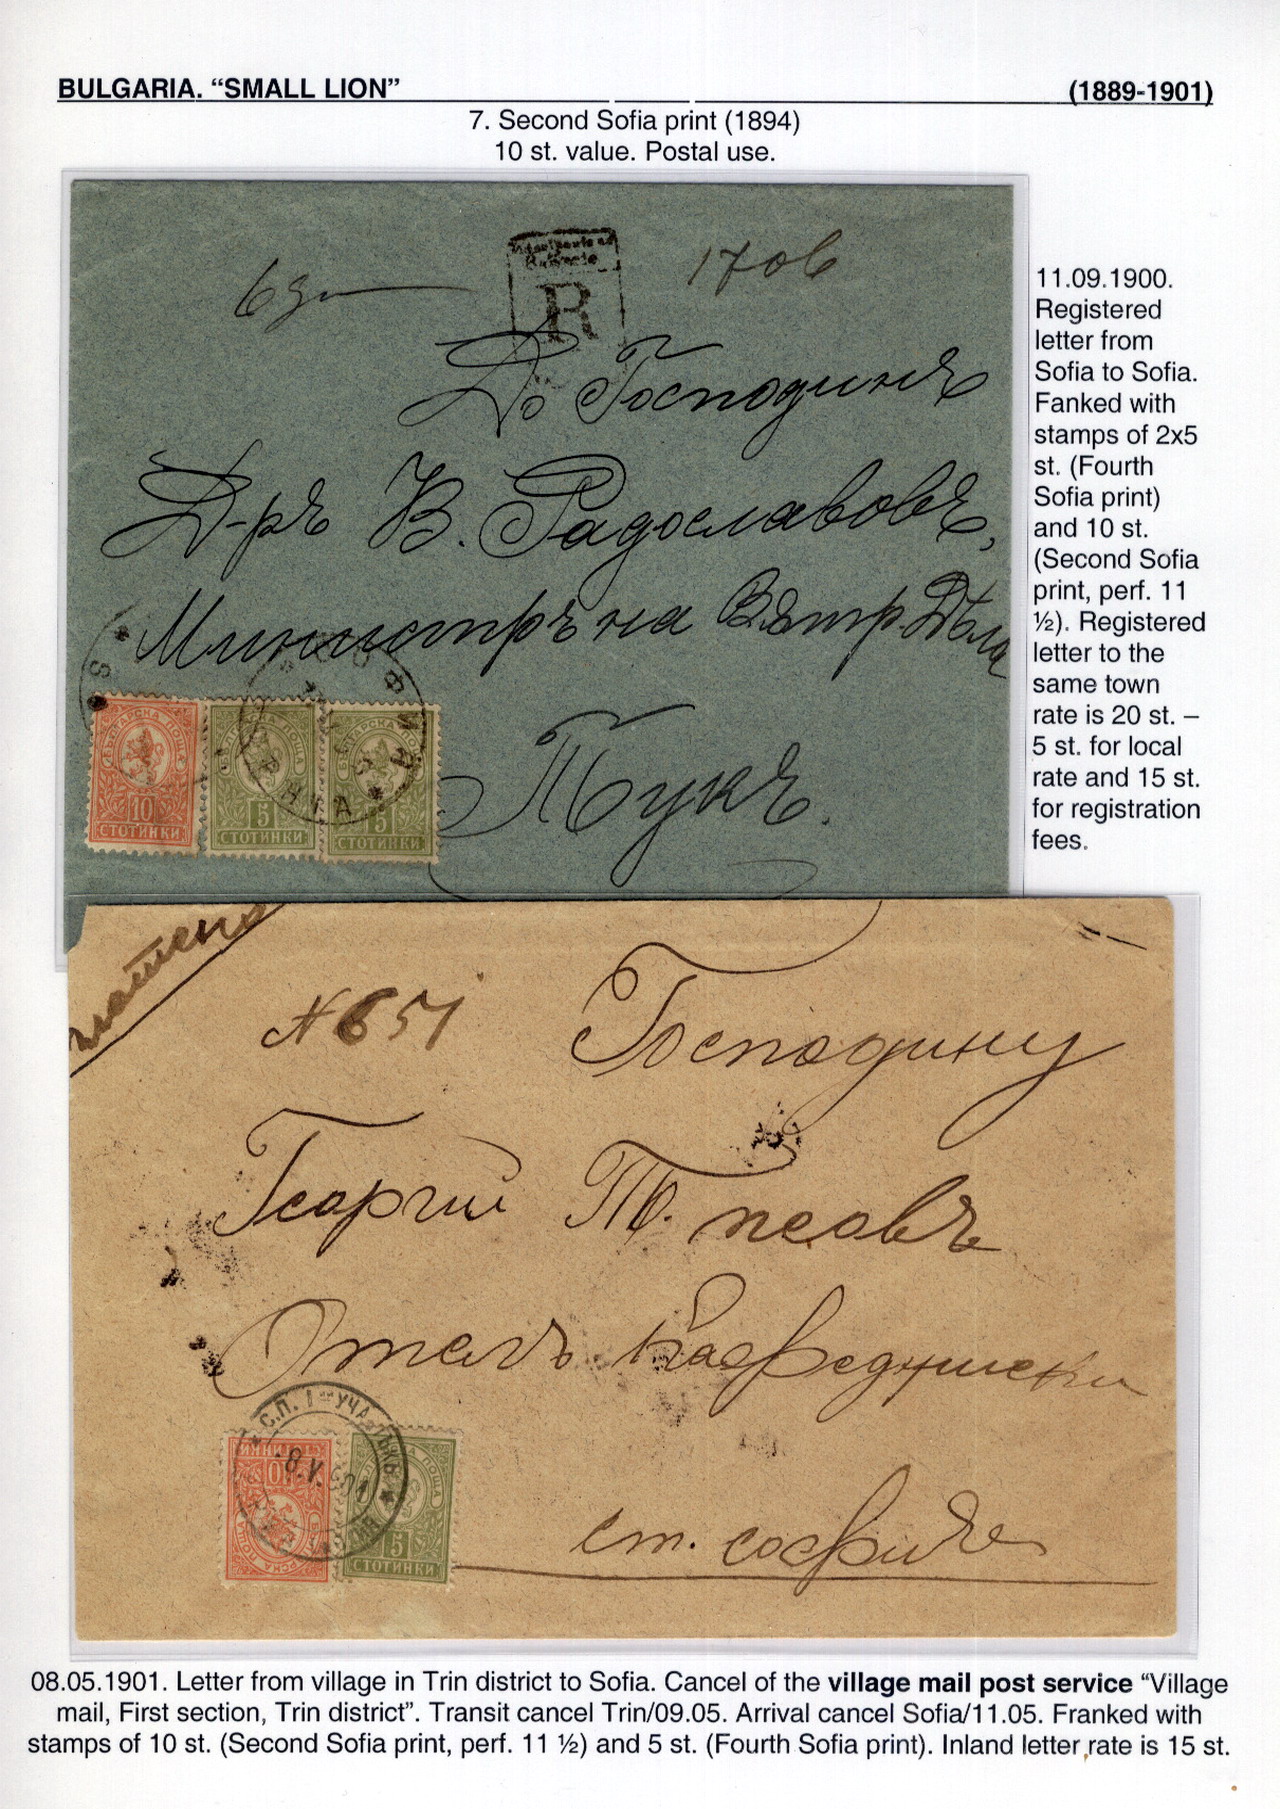 BULGARIA. “SMALL LION” (1889-1901)
7. Second Sofia print (1894)
10 st. value. Postal use.
R
1706
До Господинъ
Д-ръ В. Радославовъ,
Министръ на Вѫтр. Дѣла
Тукъ.
СОФИЯ
БЪЛГАРСКА ПОЩА
10
СТОТИНКИ
БЪЛГАРСКА ПОЩА
5
СТОТИНКИ
БЪЛГАРСКА ПОЩА
5
СТОТИНКИ
11.09.1900.
Registered
letter from
Sofia to Sofia.
Fanked with
stamps of 2x5
st. (Fourth
Sofia print)
and 10 st.
(Second Sofia
print, perf. 11
½). Registered
letter to the
same town
rate is 20 st. –
5 st. for local
rate and 15 st.
for registration
fees.
Господину
Георгий
Отелъ
ст. София
С.П. I УЧАСТЪКЪ
8.V.901
10
5
СТОТИНКИ
08.05.1901. Letter from village in Trin district to Sofia. Cancel of the village mail post service “Village
mail, First section, Trin district”. Transit cancel Trin/09.05. Arrival cancel Sofia/11.05. Franked with
stamps of 10 st. (Second Sofia print, perf. 11 ½) and 5 st. (Fourth Sofia print). Inland letter rate is 15 st.